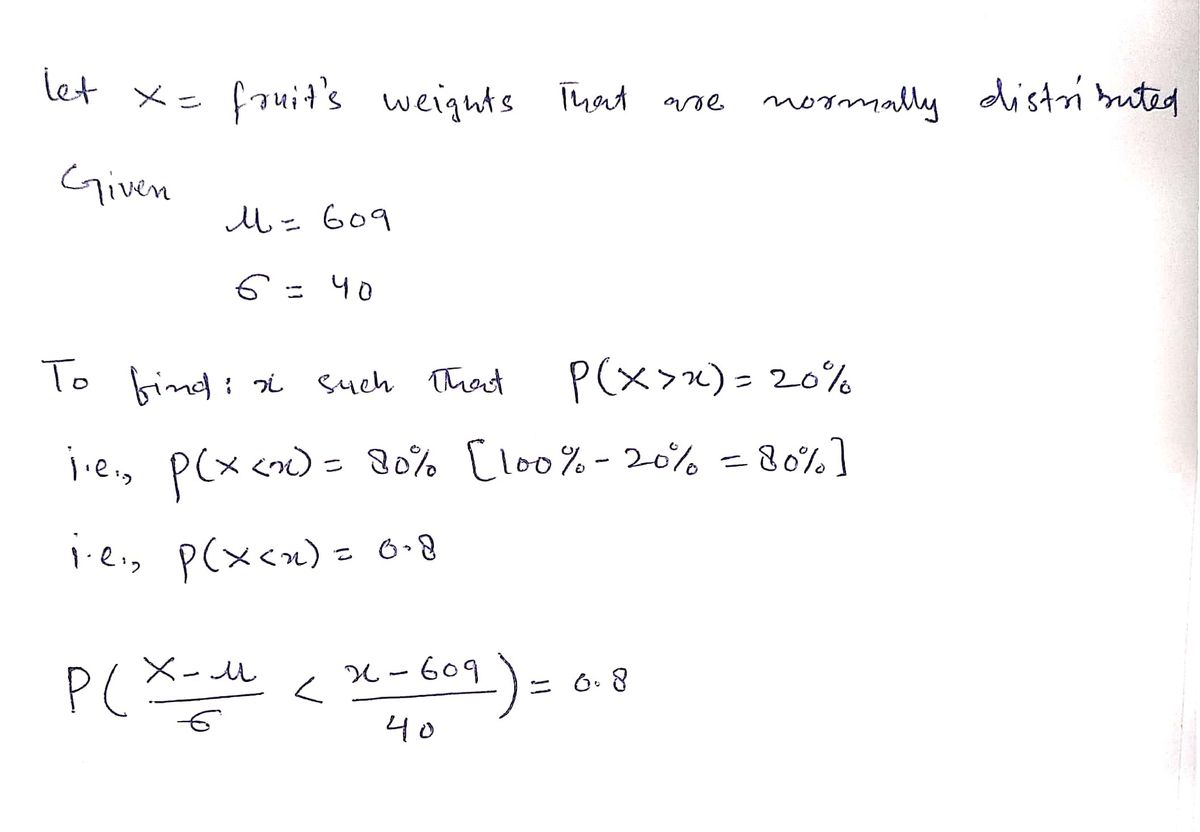 let X = fruit's weights that are normally distributed
Given
μ = 609
σ = 40
To find: x such that P(X > x) = 20%
i.e., P(X < x) = 80% [100% - 20% = 80%]
i.e., P(X < x) = 0.8
P( (X - μ)/σ < (x - 609)/40 ) = 0.8